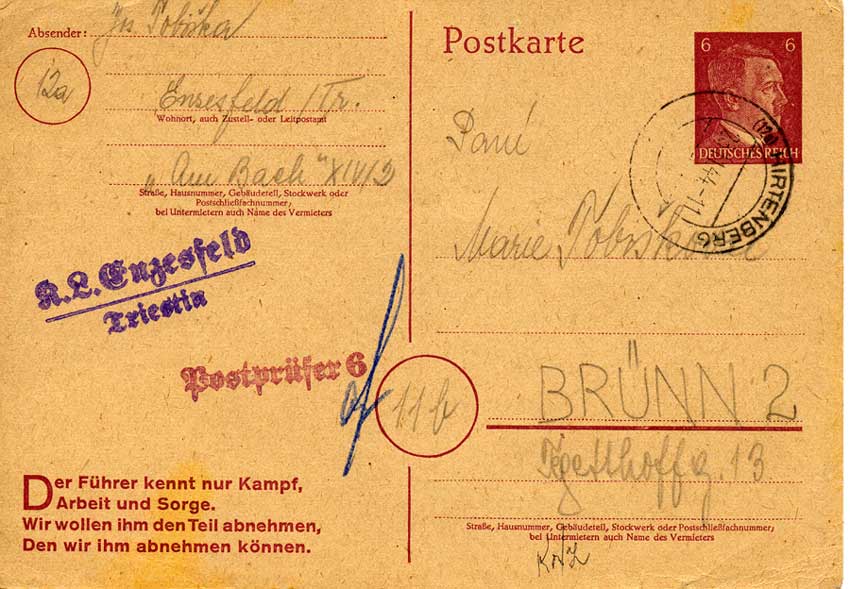 Absender: Jos Tobiška
12a
Enzesfeld / Tr.
Wohnort, auch Zustell- oder Leitpostamt
„Am Bach" XIV/2
Straße, Hausnummer, Gebäudeteil, Stockwerk oder
Postschließfachnummer;
bei Untermietern auch Name des Vermieters
K.L. Enzesfeld
Triestin
Postprüfer 6
Der Führer kennt nur Kampf,
Arbeit und Sorge.
Wir wollen ihm den Teil abnehmen,
Den wir ihm abnehmen können.
Postkarte
6 6
DEUTSCHES REICH
(12a) HIRTENBERG
44-11
Paní
Marie Tobiskova
11b
BRÜNN 2
Tegetthoffg. 13
Straße, Hausnummer, Gebäudeteil, Stockwerk oder Postschließfachnummer;
bei Untermietern auch Name des Vermieters